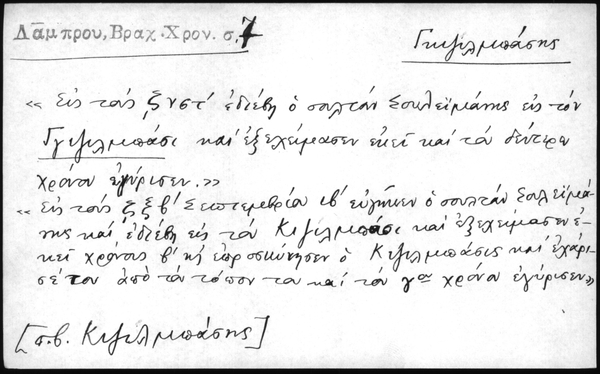 Λάμπρου, Βραχ. Χρον. σ. 7
Γκιζιλμπάσης
« Εἰς τοὺς ζνστ' ἐδιέβη ὁ σαλτὰν Σουλεϊμάνης εἰς τὸν
Γγιζιλμπάσι καὶ ἐξεχείμασεν ἐκεῖ καὶ τὰ δεύτερα
χρόνια ἐγύρισεν. »
« Εἰς τοὺς ζξβ' Σεπτεμβρίῳ ιβ' εὐγῆκεν ὁ σαλτὰν Σουλεϊμά-
νης καὶ ἐδιέβη εἰς τὸ Κιζιλμπάσι καὶ ἐξεχείμασεν ἐ-
κεῖ χρόνους β' κῃ ἐπροσκύνησεν ὁ Κιζιλμπάσις καὶ ἐχάρι-
σέ τον ἀπὸ τὰ τόπον τα καὶ τὸν γον χρόνο ἐγύρισεν »
[π.β. Κιζιλμπάσης]